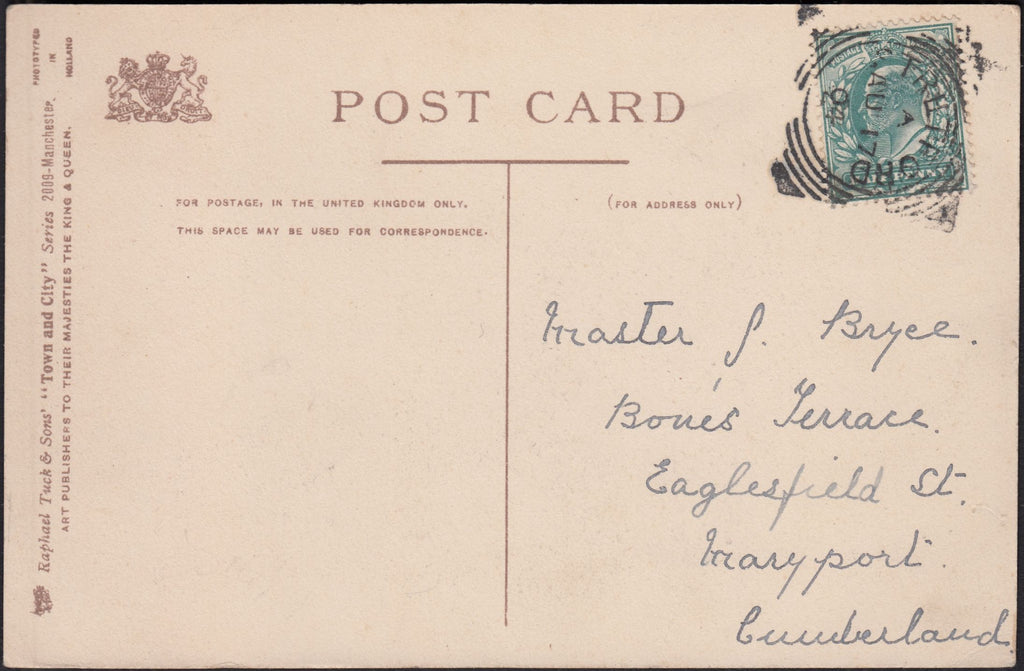 PHOTOTYPED
IN
HOLLAND
Raphael Tuck & Sons' "Town and City" Series 2009-Manchester.
ART PUBLISHERS TO THEIR MAJESTIES THE KING & QUEEN.
POST CARD
FOR POSTAGE, IN THE UNITED KINGDOM ONLY,
THIS SPACE MAY BE USED FOR CORRESPONDENCE.
(FOR ADDRESS ONLY)
STRETFORD
A
AU 17
04
Master J. Bryce.
Bone's Terrace.
Eaglesfield St.
Maryport.
Cumberland